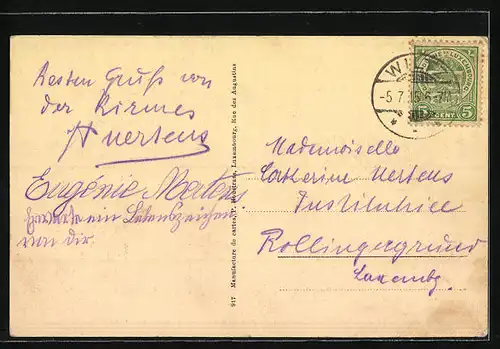 Besten Gruß von
der Kirmes
A Mertens
Eugénie Mertens
Erwarte ein Lebenszeichen
von dir.
917 Manufacture de cartes, P. Luxembourg, Rue des Augustins
WI
-5.7.15 6-7
5 CENT. 5
Mademoiselle
Catherine Mertens
Institutrice
Rollingergrund
Luxembg.